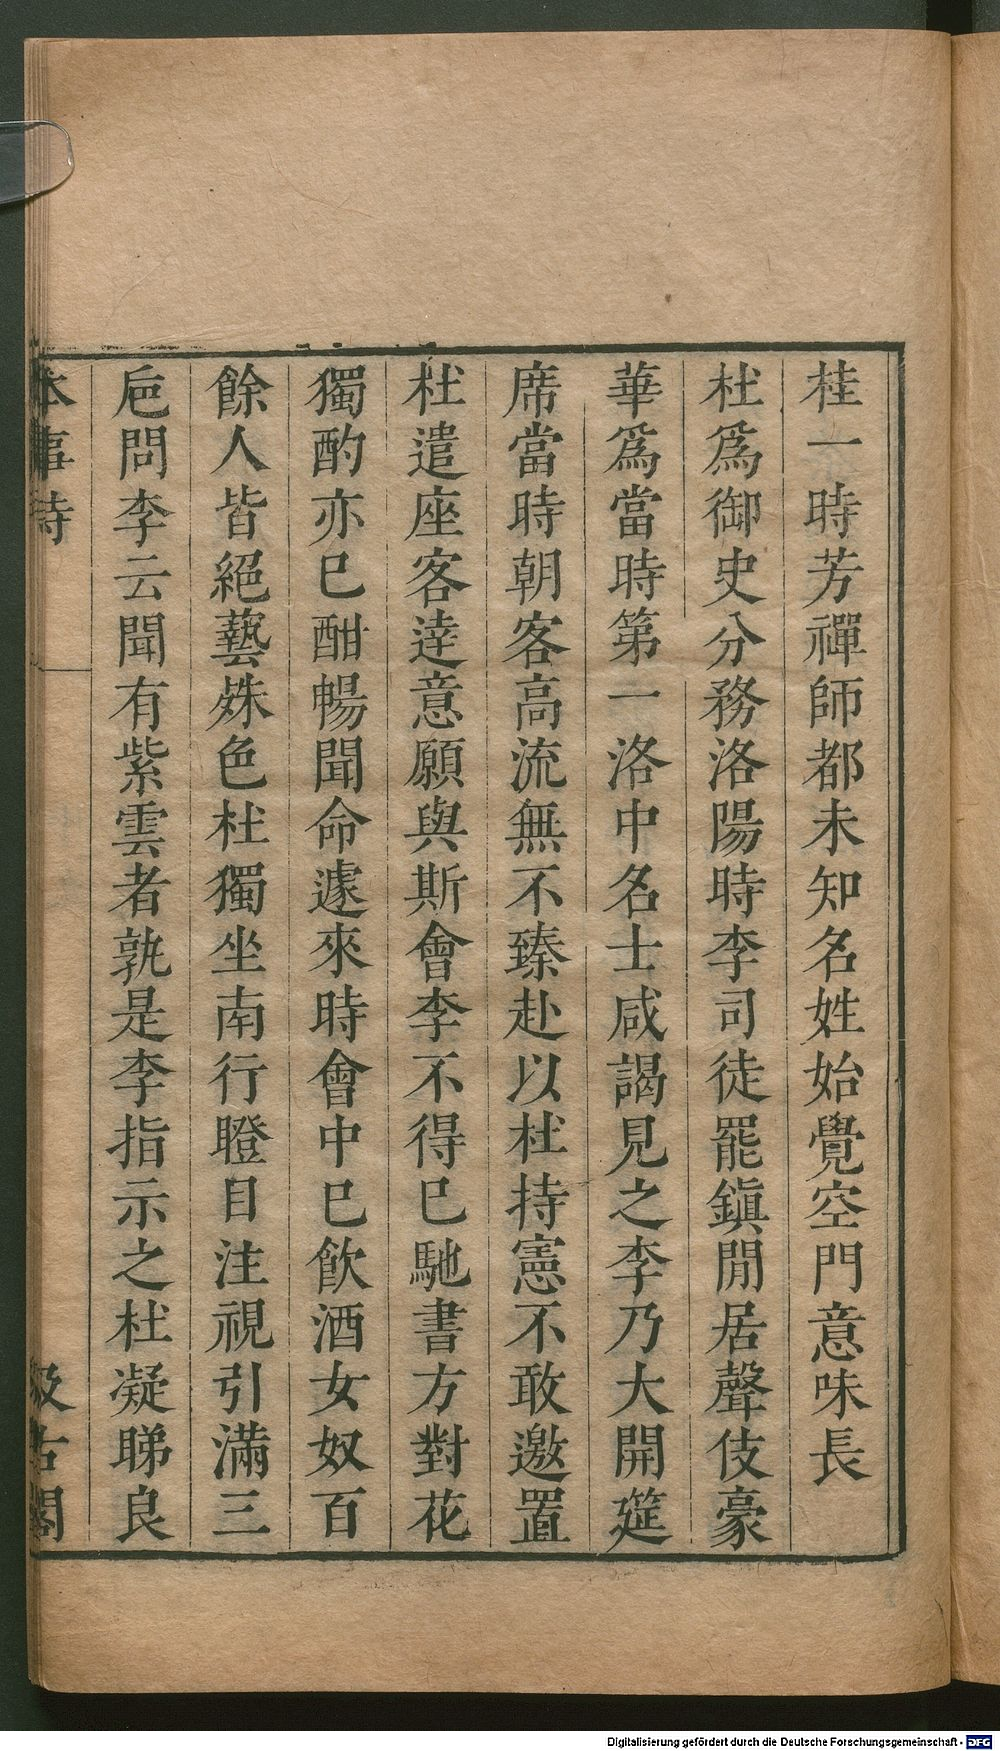 桂一時芳禪師都未知名姓始覺空門意味長
杜爲御史分務洛陽時李司徒罷鎭閒居聲伎豪
華爲當時第一洛中名士咸謁見之李乃大開筵
席當時朝客高流無不臻赴以杜持憲不敢邀置
杜遣座客逹意願與斯會李不得已馳書方對花
獨酌亦已酣暢聞命遽來時會中已飮酒女奴百
餘人皆絕藝姝色杜獨坐南行瞪目注視引滿三
巵問李云聞有紫雲者孰是李指示之杜凝睇良
本事詩
汲古閣
Digitalisierung gefördert durch die Deutsche Forschungsgemeinschaft - DFG